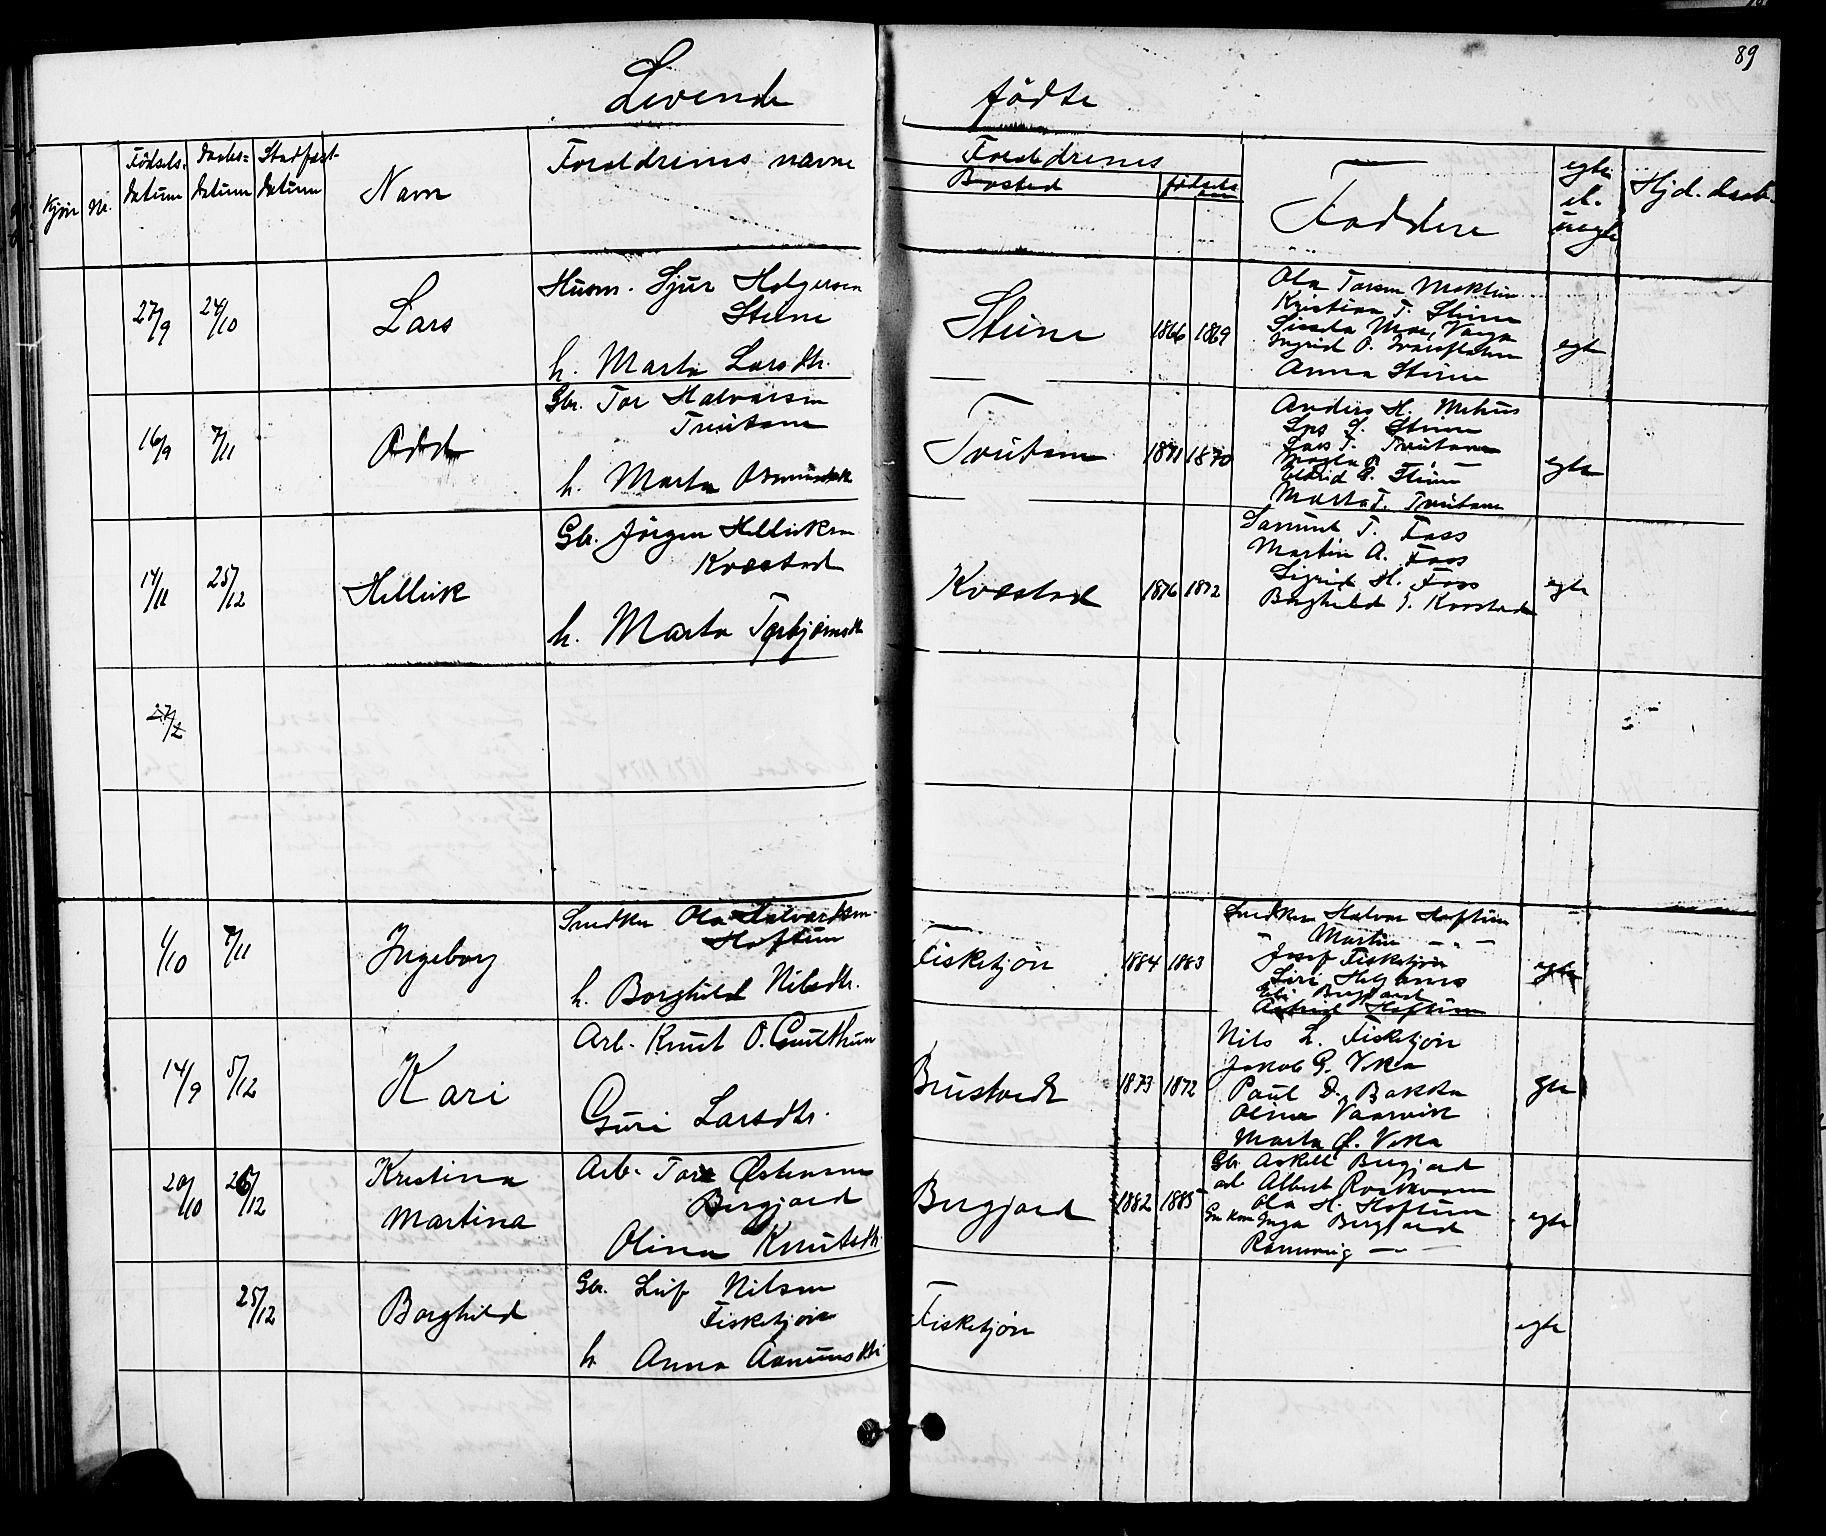 89
Levende fødte
Kjøn Nr. Fødsels- datum Daabs- datum Stadfæst- datum Navn Forældrenes navne
Forældrenes Bosted fødsels aar Faddere egte el. uegte Hjd. daab.
27/9 24/10 Lars
Husm. Sjur Holgersen
Steine
h. Marta Larsdtr.
Steine 1866 1869
Ola Torsen
Kristian T. Steine
Moe,
Ingrid O.
Anna Steine
egte
16/9 7/11 Odd
Gbr. Tor Halvorsen
Tveitane
h. Marta
Tveitane 1871 1870
Anders H. Mehus
Lars S. Steine
Lars T. Tveitane
Eldrid S. Steine
Marta T. Tveitane
egte
14/11 25/12 Hellik
Gbr. Jörgen Helliksen
Kvæstad
h. Marta Torbjørnsdtr
Kvæstad 1876 1872
Samuel T. Foss
Martin A. Foss
Sigrid H. Foss
Borghild J. Kvæstad
egte
27/2
1/10 7/11 Ingeborg
Snedker Ola Halvordsen
Hoftun
h. Borghild Nilsdtr.
Fisketjøn 1884 1883
Snedkeren Halvor Hoftun
Martin — " —
Josef Fisketjøn
Siri
Bergjord
Astrid Hoftun
egte
14/9 5/12 Kari
Arb. Knut O.
Guri Larsdtr.
Brustvedt 1873 1872
Nils L. Fisketjøn
Jakob G. Veka
Paul D. Bakka
Olina Vaarvik
Marta O. Veka
egte
20/10 26/12 Kristina
Martina
Arb. Tore Østensen
Bergjord
Olina Knutsdtr.
Bergjord 1882 1885
Gbr. Askell Bergjord
arb Albert
Ola H. Hoftun
Inga Bergjord
Rannveig — " —
egte
25/12 Borghild
Gbr. Leif Nilsen
Fisketjøn
h. Anna Aamundsdtr
Fisketjøn
egte